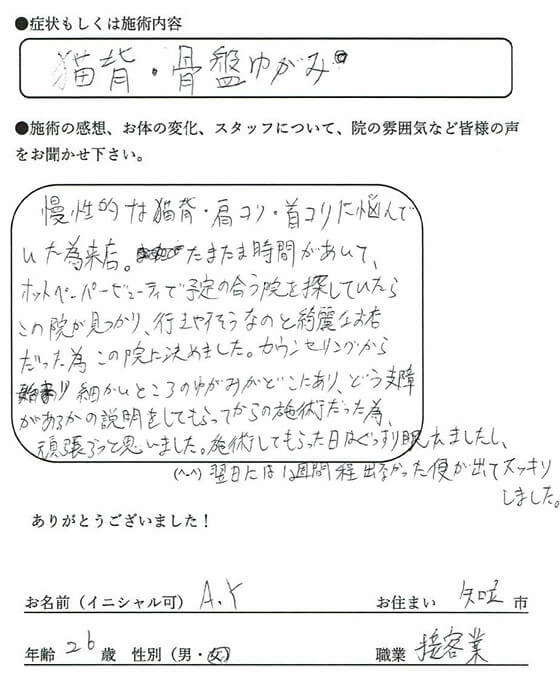 ●症状もしくは施術内容
猫背・骨盤ゆがみ
●施術の感想、お体の変化、スタッフについて、院の雰囲気など皆様の声
をお聞かせ下さい。
慢性的な猫背・肩コリ・首コリに悩んで
いた為来店。たまたま時間があいて、
ホットペーパービューティで予定の合う院を探していたら
この院が見つかり、行きやすそうなのと綺麗なお店
だった為この院に決めました。カウンセリングから
始まり細かいところのゆがみがどこにあり、どう支障
があるかの説明をしてもらってからの施術だった為、
頑張ろうと思いました。施術してもらった日はぐっすり眠れましたし、
(^-^) 翌日には1週間程出なかった便が出てスッキリ
しました。
ありがとうございました！
お名前（イニシャル可） A.Y お住まい 知立 市
年齢 26 歳 性別（男・女） 職業 接客業